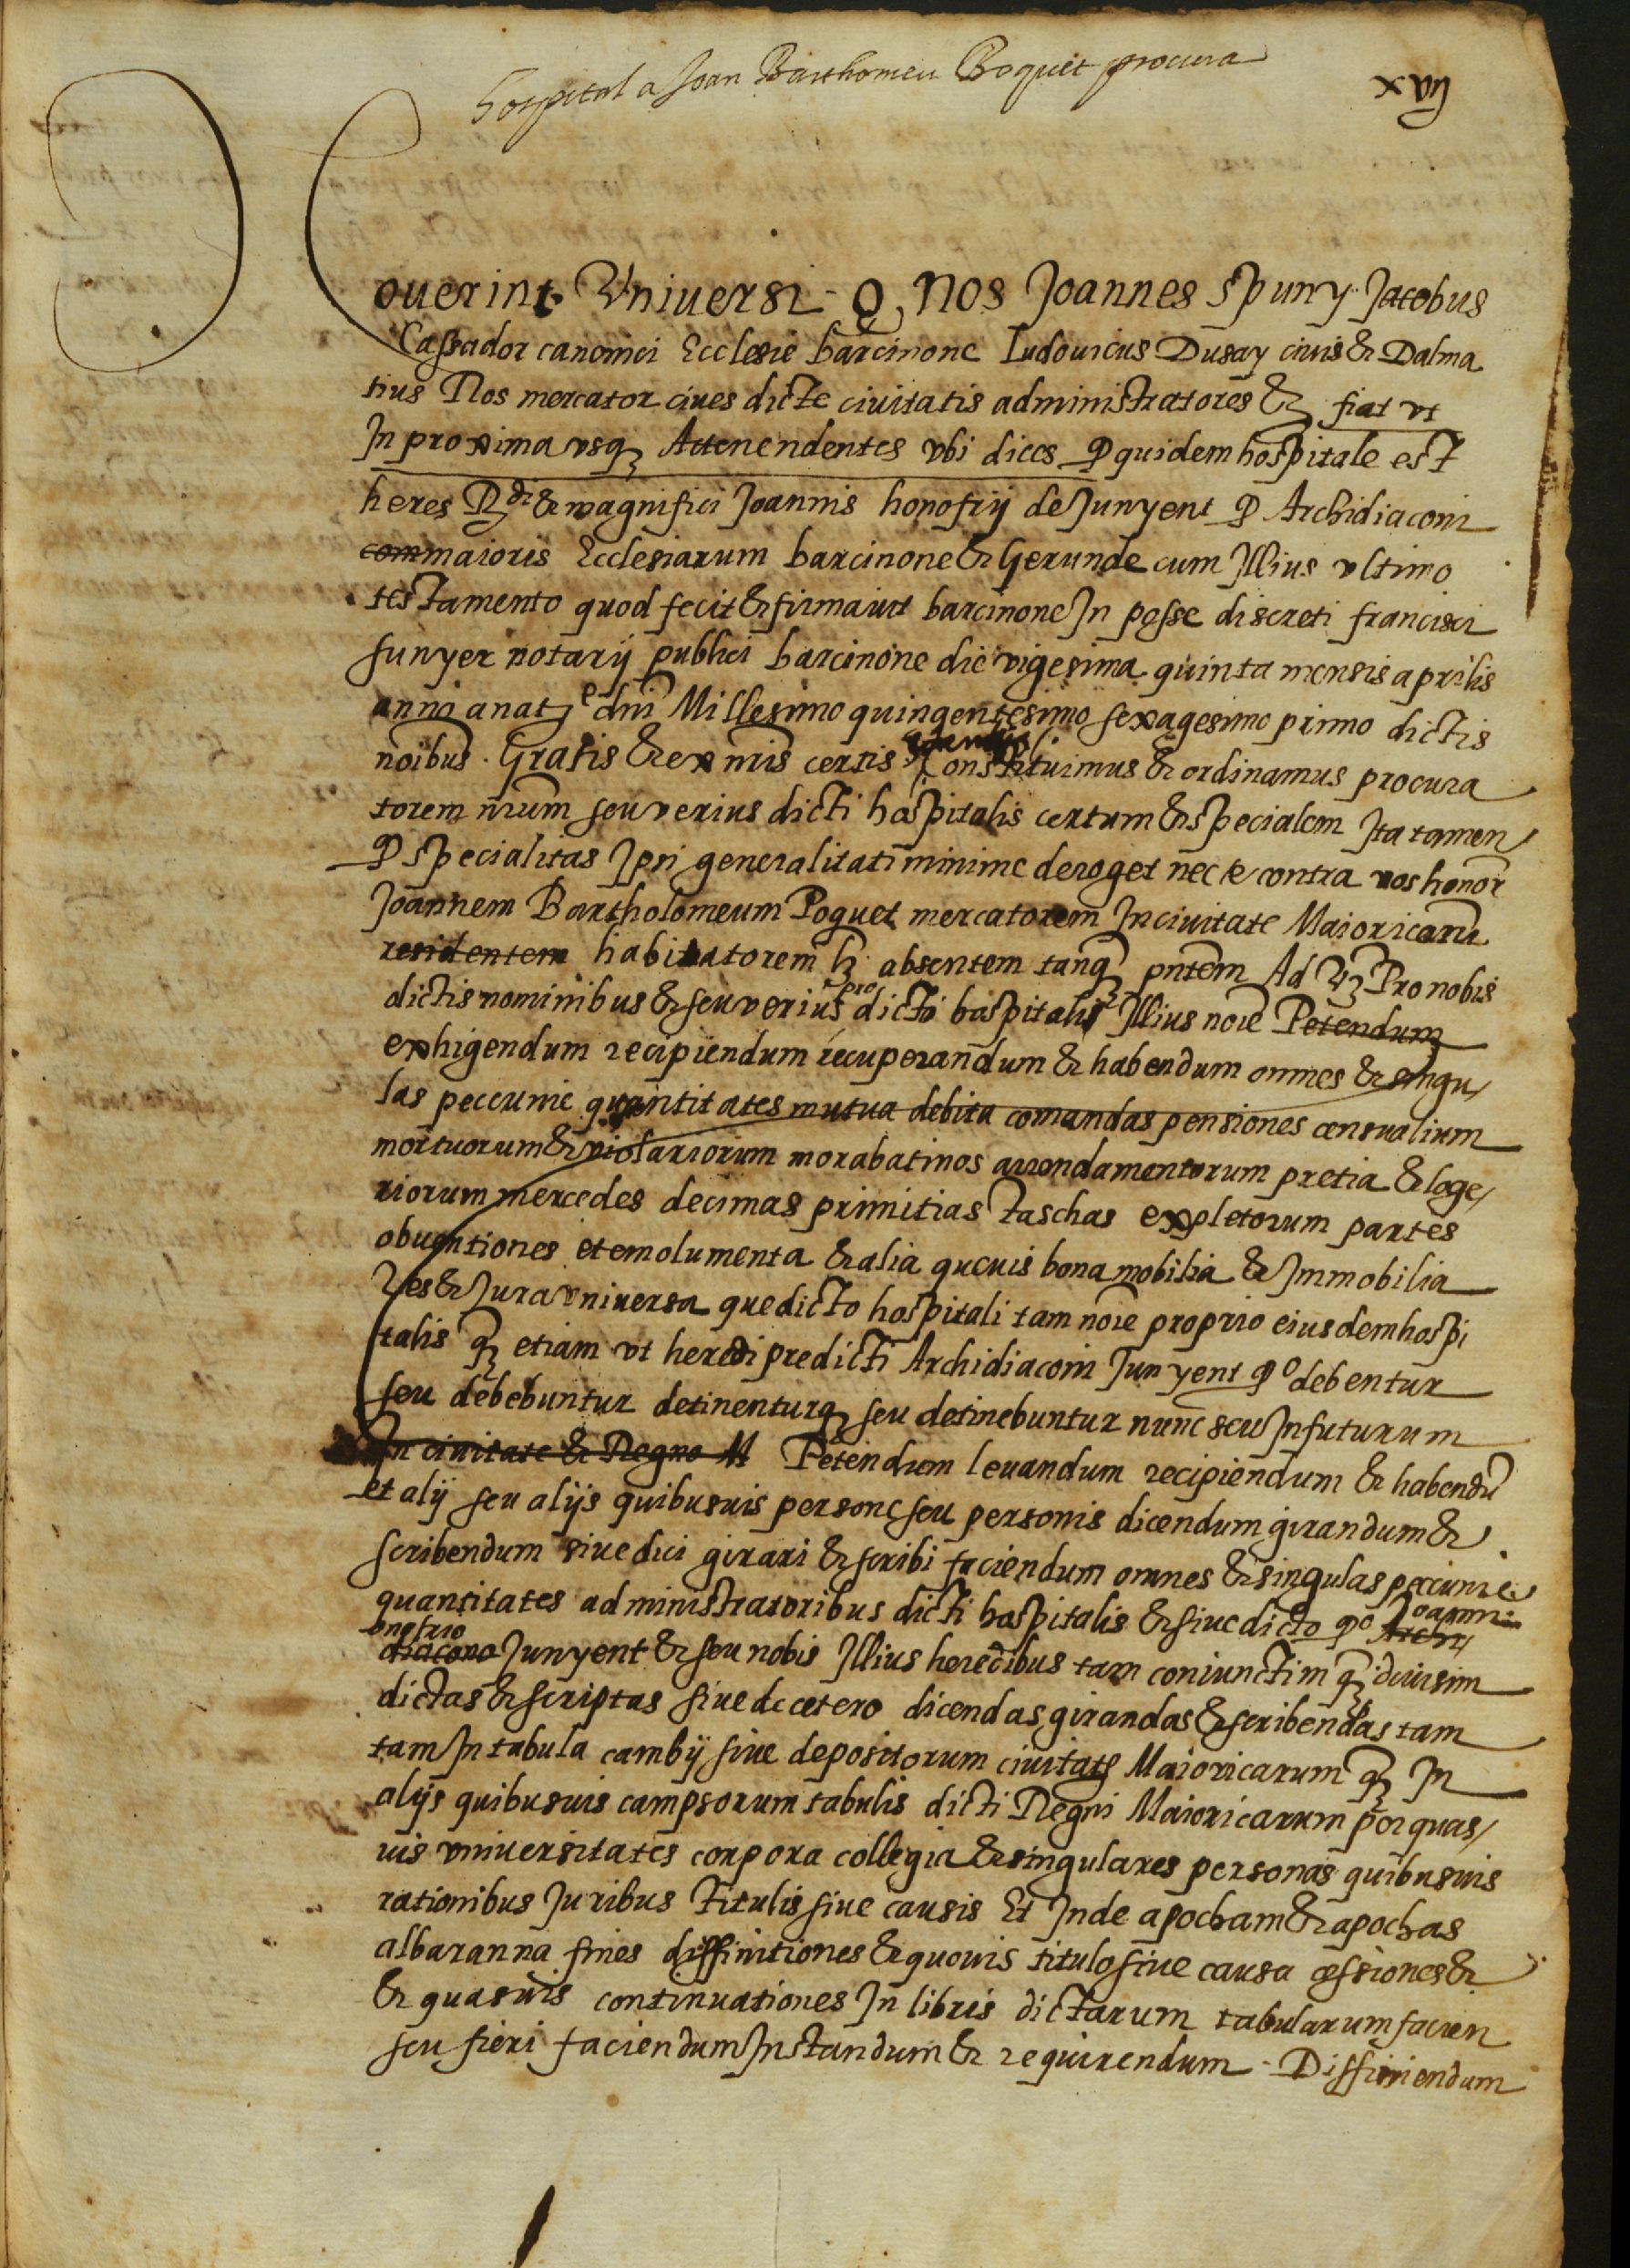 hospital a Joan Barthomeu Poquet procura
xvij
ouerint Vniuersi q, Nos Joannes Spuny Jacobus
Cassador canonici Ecclesie barcinone Ludouicus Dusay ciuis & Dalma
tius Ros mercator ciues dicte ciuitatis administratores &ᵃ fiat vt
In proxima vsqȝ Attenendentes vbi dices Quidem hospitale est
heres Rdi & magnifici Joannis honofrij de Junyent q Archidiaconi
com maioris Ecclesiarum barcinone & Gerunde cum Illius vltimo
testamento quod fecit & firmauit barcinone In posse discreti francisci
sunyer notarij publici barcinone die vigesima quinta mensis aprilis
anno a natᵉ dni Millesimo quingentesimo sexagesimo primo dictis
noibus. Gratis & ex nris certis Constituimus & ordinamus procura
torem nrum seu verius dicti hospitalis certum & specialem Ita tamen
q specialitas Ipsi generalitati minime deroget nec e contra vos honor
Joannem Bartholomeum Poquet mercatorem In ciuitate Maioricarum
residentem habitatorem lꝫ absentem tanqȝ pntem Ad vꝫ Pro nobis
dictis nominibus & seu verius pro dicto hospitali & Illius noie Petendum
exhigendum recipiendum recuperandum & habendum omnes & singu
las peccunie quantitates mutua debita comandas pensiones censualium
mortuorum & violariorum morabatinos arrendamentorum pretia & loge
riorum mercedes decimas primitias taschas expletorum partes
obuentiones et emolumenta & alia queuis bona mobilia & Immobilia
res & Jura vniuersa que dicto hospitali tam noie proprio eiusdem hospi
talis qȝ etiam vt heredi predicti Archidiaconi Junyent qº debentur
seu debebuntur detinenturqȝ seu detinebuntur nunc seu In futurum
In ciuitate & Regno M Petendum leuandum recipiendum & habendu
et alij seu alijs quibusuis persone seu personis dicendum girandum &
scribendum siue dici girari & scribi faciendum omnes & singulas peccunie
quantitates administratoribus dicti hospitalis & siue dicto qº Joanni Archi
onofrio diacono Junyent & seu nobis Illius heredibus tam coniunctim qȝ diuisim
dictas & scriptas siue de cetero dicendas girandas & scribendas tam
tam In tabula cambij siue depositorum ciuitatis Maioricarum qȝ In
alijs quibusuis campsorum tabulis dicti Regni Maioricarum per quas
uis vniuersitates corpora collegia & singulares personas quibusuis
rationibus Juribus titulis siue causis Et Inde apocham & apochas
albaranna fines diffinitiones & quouis titulo siue causa cessiones &
& quasuis continuationes In libris dictarum tabularum facien
seu fieri faciendum Instandum & requirendum Diffiniendum